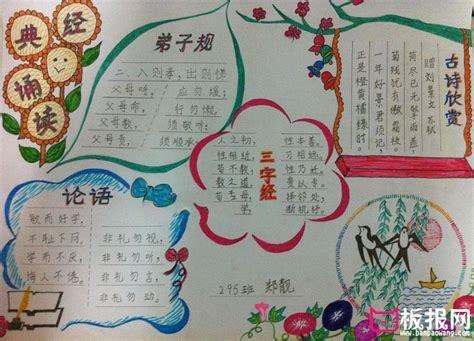 经典
诵读
弟子规
二、入则孝,出则悌
父母呼, 应勿缓;
父母命, 行勿懒。
父母教, 须敬听;
父母责, 须顺承
古诗欣赏
赠刘景文 苏轼
荷尽已无擎雨盖,
菊残犹有傲霜枝。
一年好景君须记,
正是橙黄橘绿时。
三字经
人之初, 性本善。
性相近, 习相远。
苟不教, 性乃迁。
教之道, 贵以专。
昔孟母, 择邻处。
学, 断机杼。
论语
敏而好学,
不耻下问。
学而不厌,
诲人不倦。
非礼勿视,
非礼勿听,
非礼勿言,
非礼勿动。
295班 郑靓
板报网
www.banbaowang.com